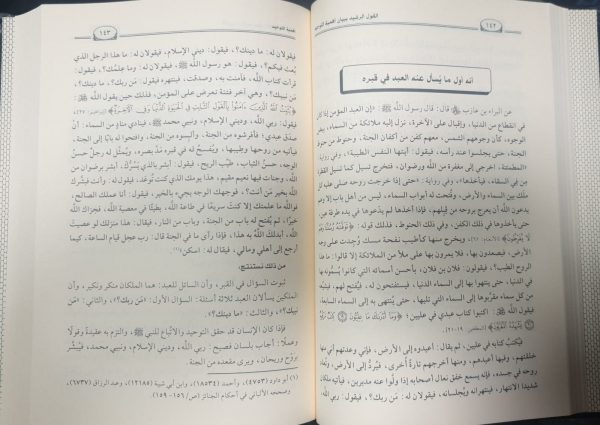 القول الرشيد ببيان أهمية التوحيد
١٤٢
أنه أول ما يُسأل عنه العبد في قبره
عن البراء بن عازب ﷺ قال: قال رسول الله ﷺ: «إن العبد المؤمن إذا كان
في انقطاع من الدنيا، وإقبال على الآخرة، نزل إليه ملائكة من السماء، بيض
الوجوه، كأن وجوههم الشمس، معهم كفن من أكفان الجنة، وحنوط من حنوط
الجنة، حتى يجلسوا عند رأسه، فيقول: أيتها النفس الطيبة - وفي رواية:
المطمئنة - اخرجي إلى مغفرة من الله ورضوان، فتخرج تسيل كما تسيل القطرة
مِن فِي السقاء، فيأخذها» - وفي رواية: «حتى إذا خرجت روحه صلى عليه كل
ملك بين السماء والأرض، وفُتحت له أبواب السماء، ليس من أهل باب إلا وهم
يدعون الله أن يعرج بروحه من قِبلهم، فإذا أخذها لم يدعوها في يده طرفة عين
حتى يأخذوها في ذلك الكفن، وفي ذلك الحنوط، فذلك قوله: ﴿تَوَفَّتْهُ رُسُلُنَا وَهُمْ
لَا يُفَرِّطُونَ﴾ ويخرج منها كأطيب نفحة مسك وُجدت على وجه
الأرض، فيصعدون بها، فلا يمرون بها على ملأ من الملائكة إلا قالوا: ما هذا
الروح الطيب؟ فيقولون: فلان بن فلان، بأحسن أسمائه التي كانوا يُسمونه بها
في الدنيا، حتى ينتهوا بها إلى السماء الدنيا، فيستفتحون له، فيُفتح لهم، فيُشيعه
من كل سماء مقربوها إلى السماء التي تليها، حتى ينتهي به إلى السماء السابعة،
فيقول الله: اكتبوا كتاب عبدي في عليين: ﴿وَمَا أَدْرَاكَ مَا عِلِّيُّونَ كِتَابٌ مَّرْقُومٌ
يَشْهَدُهُ الْمُقَرَّبُونَ﴾
فيُكتب كتابه في عليين، ثم يقال: أعيدوه إلى الأرض، فإني وعدتهم أني منها
خلقتهم، وفيها أعيدهم، ومنها أخرجهم تارة أخرى، فيُردُّ إلى الأرض، وتُعاد
روحه في جسده، فإنه يسمع خفق نعال أصحابه إذا ولوا عنه مدبرين، فيأتيه ملكان
شديدا الانتهار، فينتهرانه ويُجلسانه، فيقولان له: مَن ربك؟، فيقول: ربي الله،
أهمية التوحيد
١٤٣
فيقولان له: ما دينك؟، فيقول: ديني الإسلام، فيقولان له: ما هذا الرجل الذي
بُعث فيكم؟، فيقول: هو رسول الله ﷺ، فيقولان له: وما عملك؟، فيقول:
قرأت كتاب الله، فآمنت به، وصدقت، فينتهره فيقول: مَن ربك؟، ما دينك؟،
مَن نبيك؟، وهي آخر فتنة تعرض على المؤمن، فذلك حين يقول الله ﷺ:
﴿يُثَبِّتُ اللَّهُ الَّذِينَ آمَنُوا بِالْقَوْلِ الثَّابِتِ فِي الْحَيَاةِ الدُّنْيَا وَفِي الْآخِرَةِ﴾
فيقول: ربي الله، وديني الإسلام، ونبيي محمد ﷺ، فينادي مناد من السماء: أن
صدق عبدي؛ فأفرشوه من الجنة، وألبسوه من الجنة، وافتحوا له بابًا إلى الجنة،
فيأتيه من روحها وطيبها، ويُفسح له في قبره مَدَّ بصره، ويُمثَّل له رجل حسنُ
الوجه، حسنُ الثياب، طيبُ الريح، فيقول: أبشر بالذي يَسُرُّك، أبشر برضوان من
الله، وجنات فيها نعيم مقيم، هذا يومك الذي كنت تُوعد، فيقول له: وأنت فبشَّرك
الله بخير مَن أنت؟، فوجهك الوجه يجيء بالخير، فيقول: أنا عملك الصالح،
فوالله ما علمتك إلا كنت سريعًا في طاعة الله، بطيئًا في معصية الله، فجزاك الله
خيرًا، ثم يُفتح له باب من الجنة، وباب من النار، فيقال: هذا منزلك لو عصيتَ
الله، أبدلك الله به هذا؛ فإذا رأى ما في الجنة قال: رب عجل قيام الساعة، كيما
أرجع إلى أهلي ومالي، فيقال له: اسكن»(١).
من ذلك نستنتج:
ثبوت السؤال في القبر، وأن السائل للعبد: هما الملكان منكر ونكير، وأن
الملكين يسألان العبد ثلاثة أسئلة: السؤال الأول: «مَن ربك؟»، والثاني: «مَن
نبيك؟»، والثالث: «ما دينك؟».
فإذا كان الإنسان قد حقق التوحيد والاتباع للنبي ﷺ، والتزم به عقيدة وقولًا
وعملًا؛ أجاب بلسان فصيح: ربي الله، وديني الإسلام، ونبيي محمد، فيُبشَّر
بروح وريحان، ويرى مقعده من الجنة.
(١) أبو داود (٤٧٥٣)، وأحمد (١٨٥٣٤)، وابن أبي شيبة (١٢١٨٥)، وعبد الرزاق (٦٧٣٧)
وصححه الألباني في أحكام الجنائز (ص/١٥٦-١٥٩).